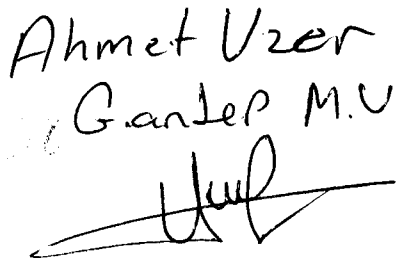 Ahmet Uzer
G.antep M.V